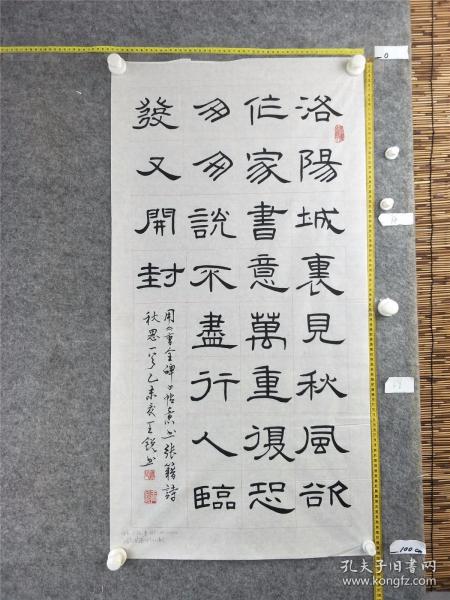 洛陽城裏見秋風欲
作家書意萬重復恐
匆匆說不盡行人臨
發又開封
用《曹全碑》帖意书張籍詩
秋思一首乙未夏王銳书
0
100cm
孔夫子旧书网
kongfz.com